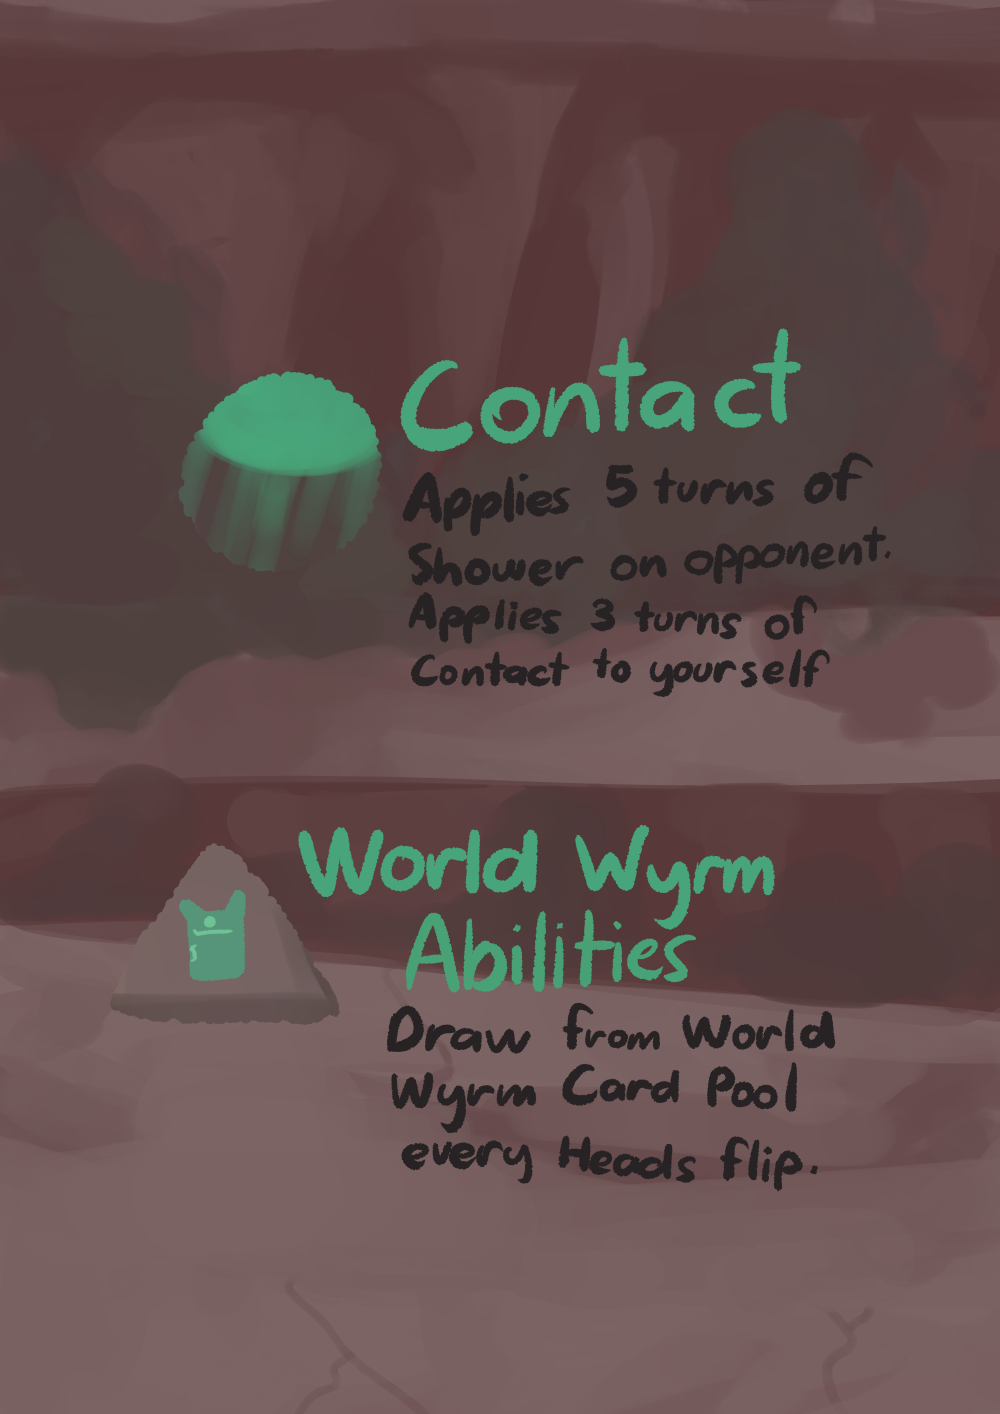 Contact
Applies 5 turns of
Shower on opponent.
Applies 3 turns of
Contact to yourself
World Wyrm
Abilities
Draw from World
Wyrm Card Pool
every Heads flip.